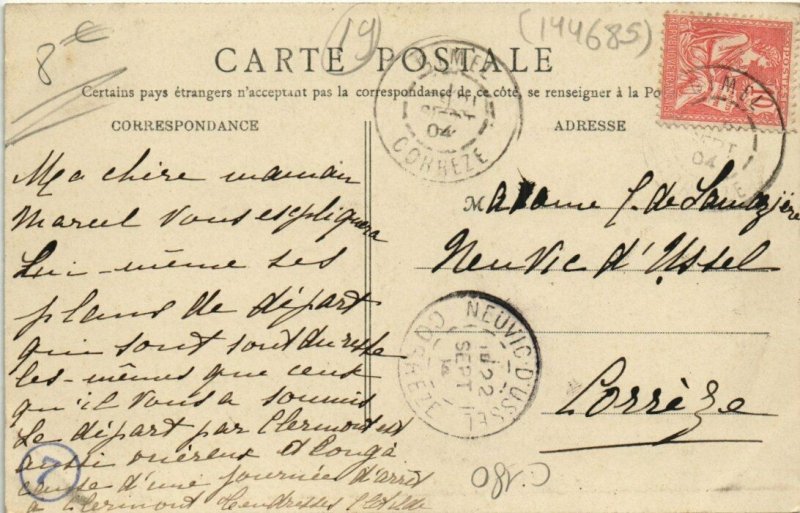 8€
19
(144685)
CARTE POSTALE
Certains pays étrangers n'acceptant pas la correspondance de ce côté, se renseigner à la Po
CORRESPONDANCE
ADRESSE
Ma chère maman
Marcel vous expliquera
Lui-même ses
plans de départ
qui sont sont du reste
les-mêmes que ceux
qu'il vous a soumis
Le départ par Clermont est
aussi onéreux et longà
cause d'une journée d'arrêt
a Clermont Tendresses Clotilde
Madame C. de Lamazière
Neuvic d'Ussel
Corrèze
SEPT
04
CORREZE
MEL
SEPT
04
NEUVIC-D'USSEL
22
SEPT
CORREZE
7
C.180